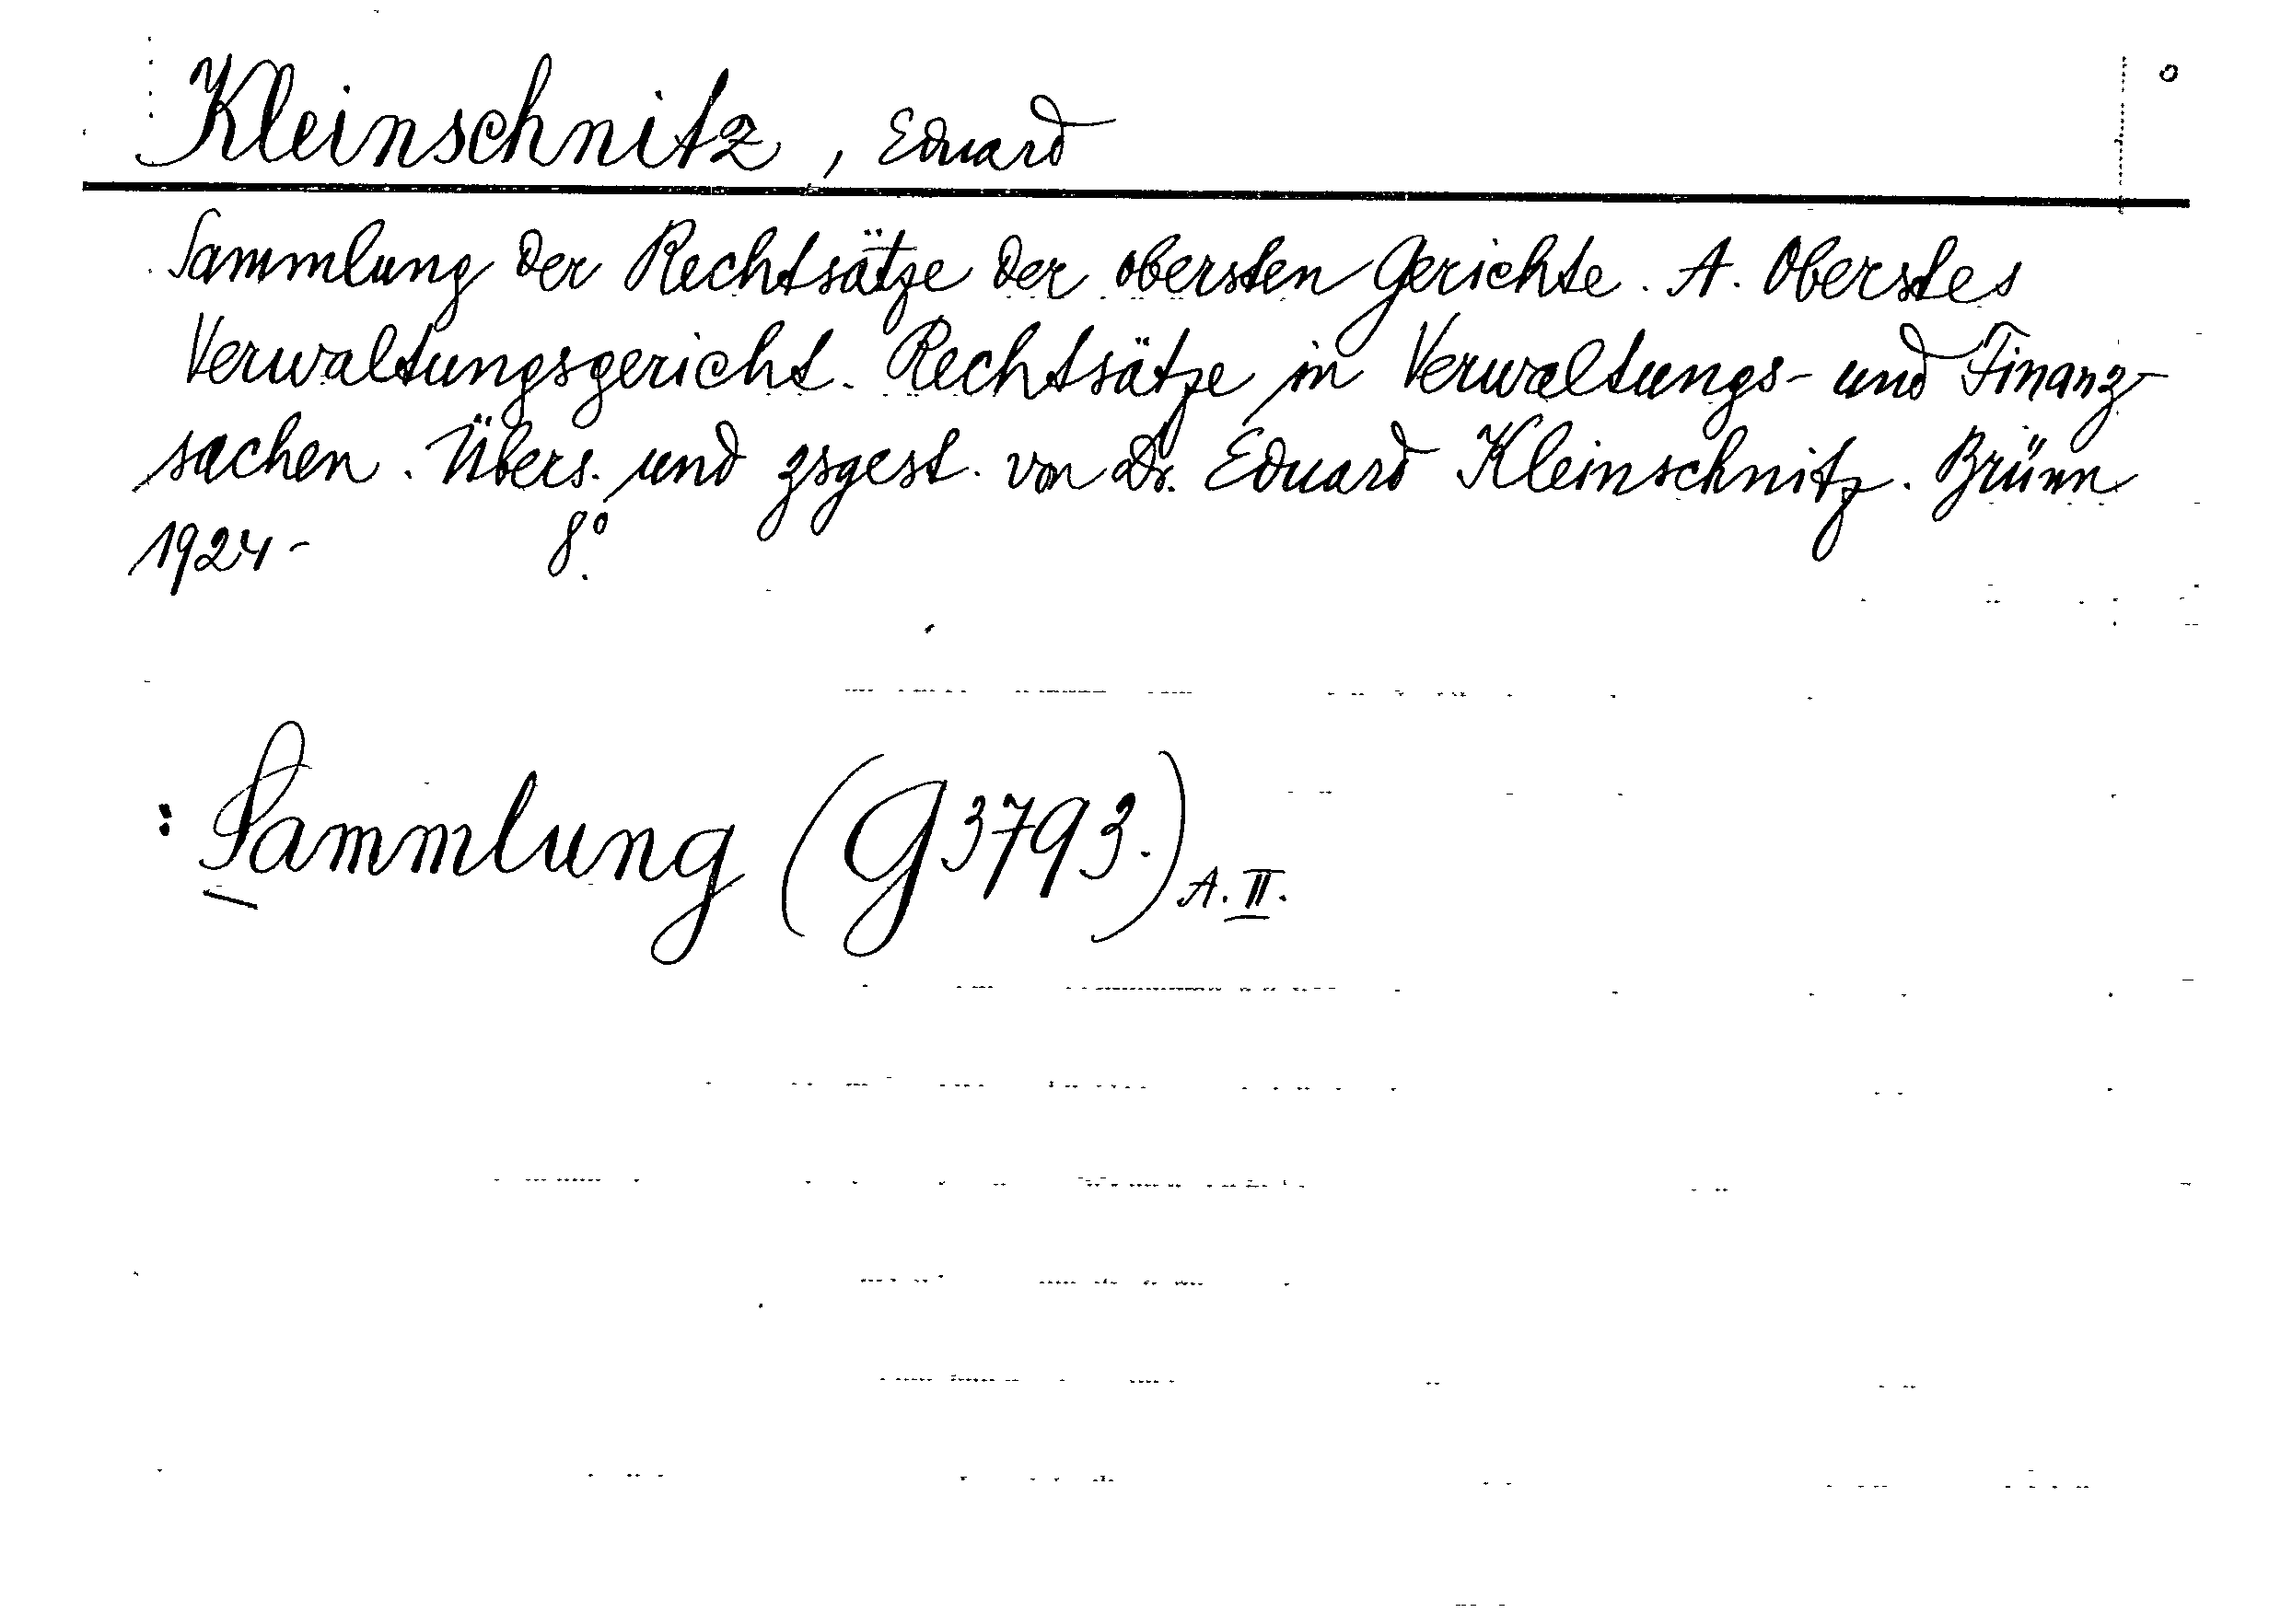 Kleinschnitz, Eduard
Sammlung der Rechtsätze der obersten Gerichte. A. Oberstes
Verwaltungsgericht. Rechtsätze in Verwaltungs- und Finanz-
sachen. Übers. und zsgest. von Dr. Eduard Kleinschnitz. Brünn
1924- 8°.
: Sammlung (G 3793.) A. II.